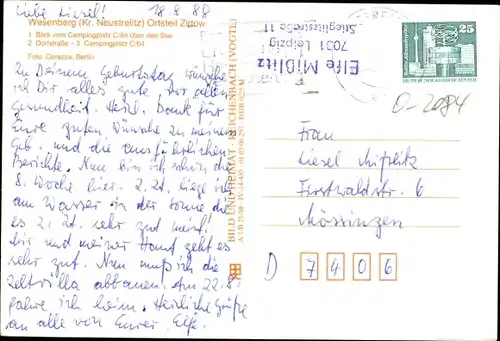 Liebe Liesel! 18.8.88
Wesenberg (Kr. Neustrelitz) Ortsteil Zirtow
1 Blick vom Campingplatz C/64 über den See
2 Dorfstraße - 3 Campingplatz C/64
Foto: Cerazza, Berlin
Zu Deinem Geburtstag wünsche
ich Dir alles gute vor allem
Gesundheit. Herzl. Dank für
Eure guten Wünsche zu meinem
Geb. und die ausführlichen
Berichte. Nun bin ich schon die
8. Woche hier. 2. Zt. liege ich
am Wasser in der Sonne die
es z. Zt. sehr gut meint.
Mir und meiner Haut geht es
sehr gut. Nun muß ich die
Zeltvilla abbauen. Am 22.8.
fahre ich heim. Herzliche Grüße
an alle von Eurer Elfe.
BILD UND HEIMAT REICHENBACH (VOGTL)
Elfe Mißlitz
7031 Leipzig
Stieglitzstraße 11
25
O-2084
Frau
Liesel Mißlitz
Forstwaldstr. 6
Mössingen
D 7406